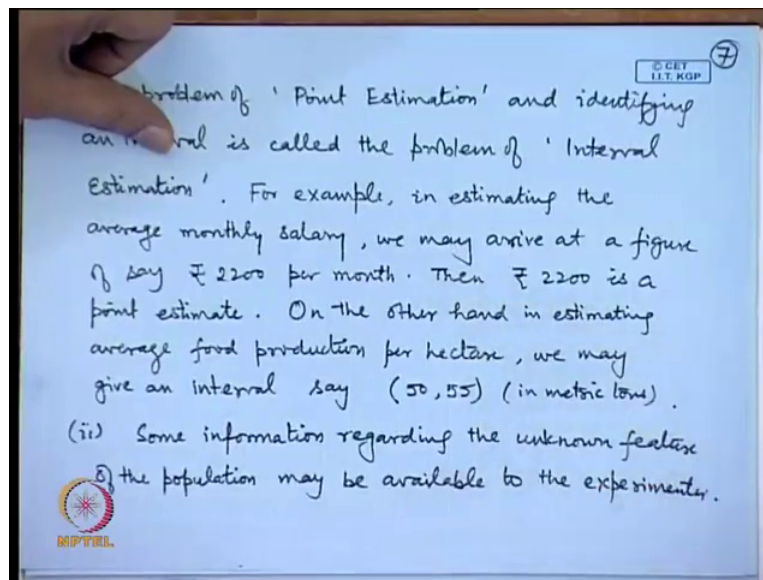 © CET
I.I.T. KGP
7
problem of 'Point Estimation' and identifying
an interval is called the problem of 'Interval
Estimation'. For example, in estimating the
average monthly salary, we may arrive at a figure
of say ₹ 2200 per month. Then ₹ 2200 is a
point estimate. On the other hand in estimating
average food production per hectare, we may
give an interval say (50, 55) (in metric tons).
(ii) Some information regarding the unknown feature
of the population may be available to the experimenter.
NPTEL